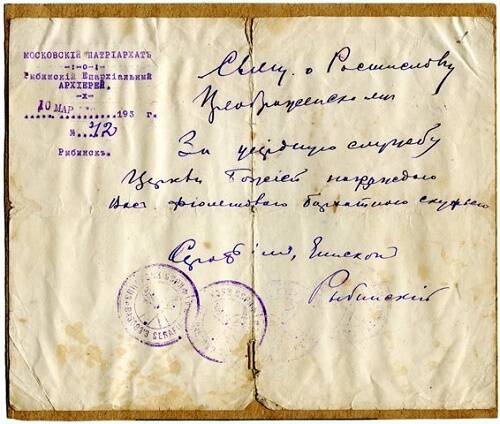 МОСКОВСКІЙ ПАТРІАРХАТЪ
—:о:—
Рыбинскій Епархіальный
АРХІЕРЕЙ.
—х—
10 МАР 193 г.
№ 72
Рыбинскъ.
Свящ. о Ростиславу
За усердную службу
Церкви Божіей награждаю
Васъ фіолетовою бархатною скуфьею
Серафимъ, Епископ
Рыбинскій